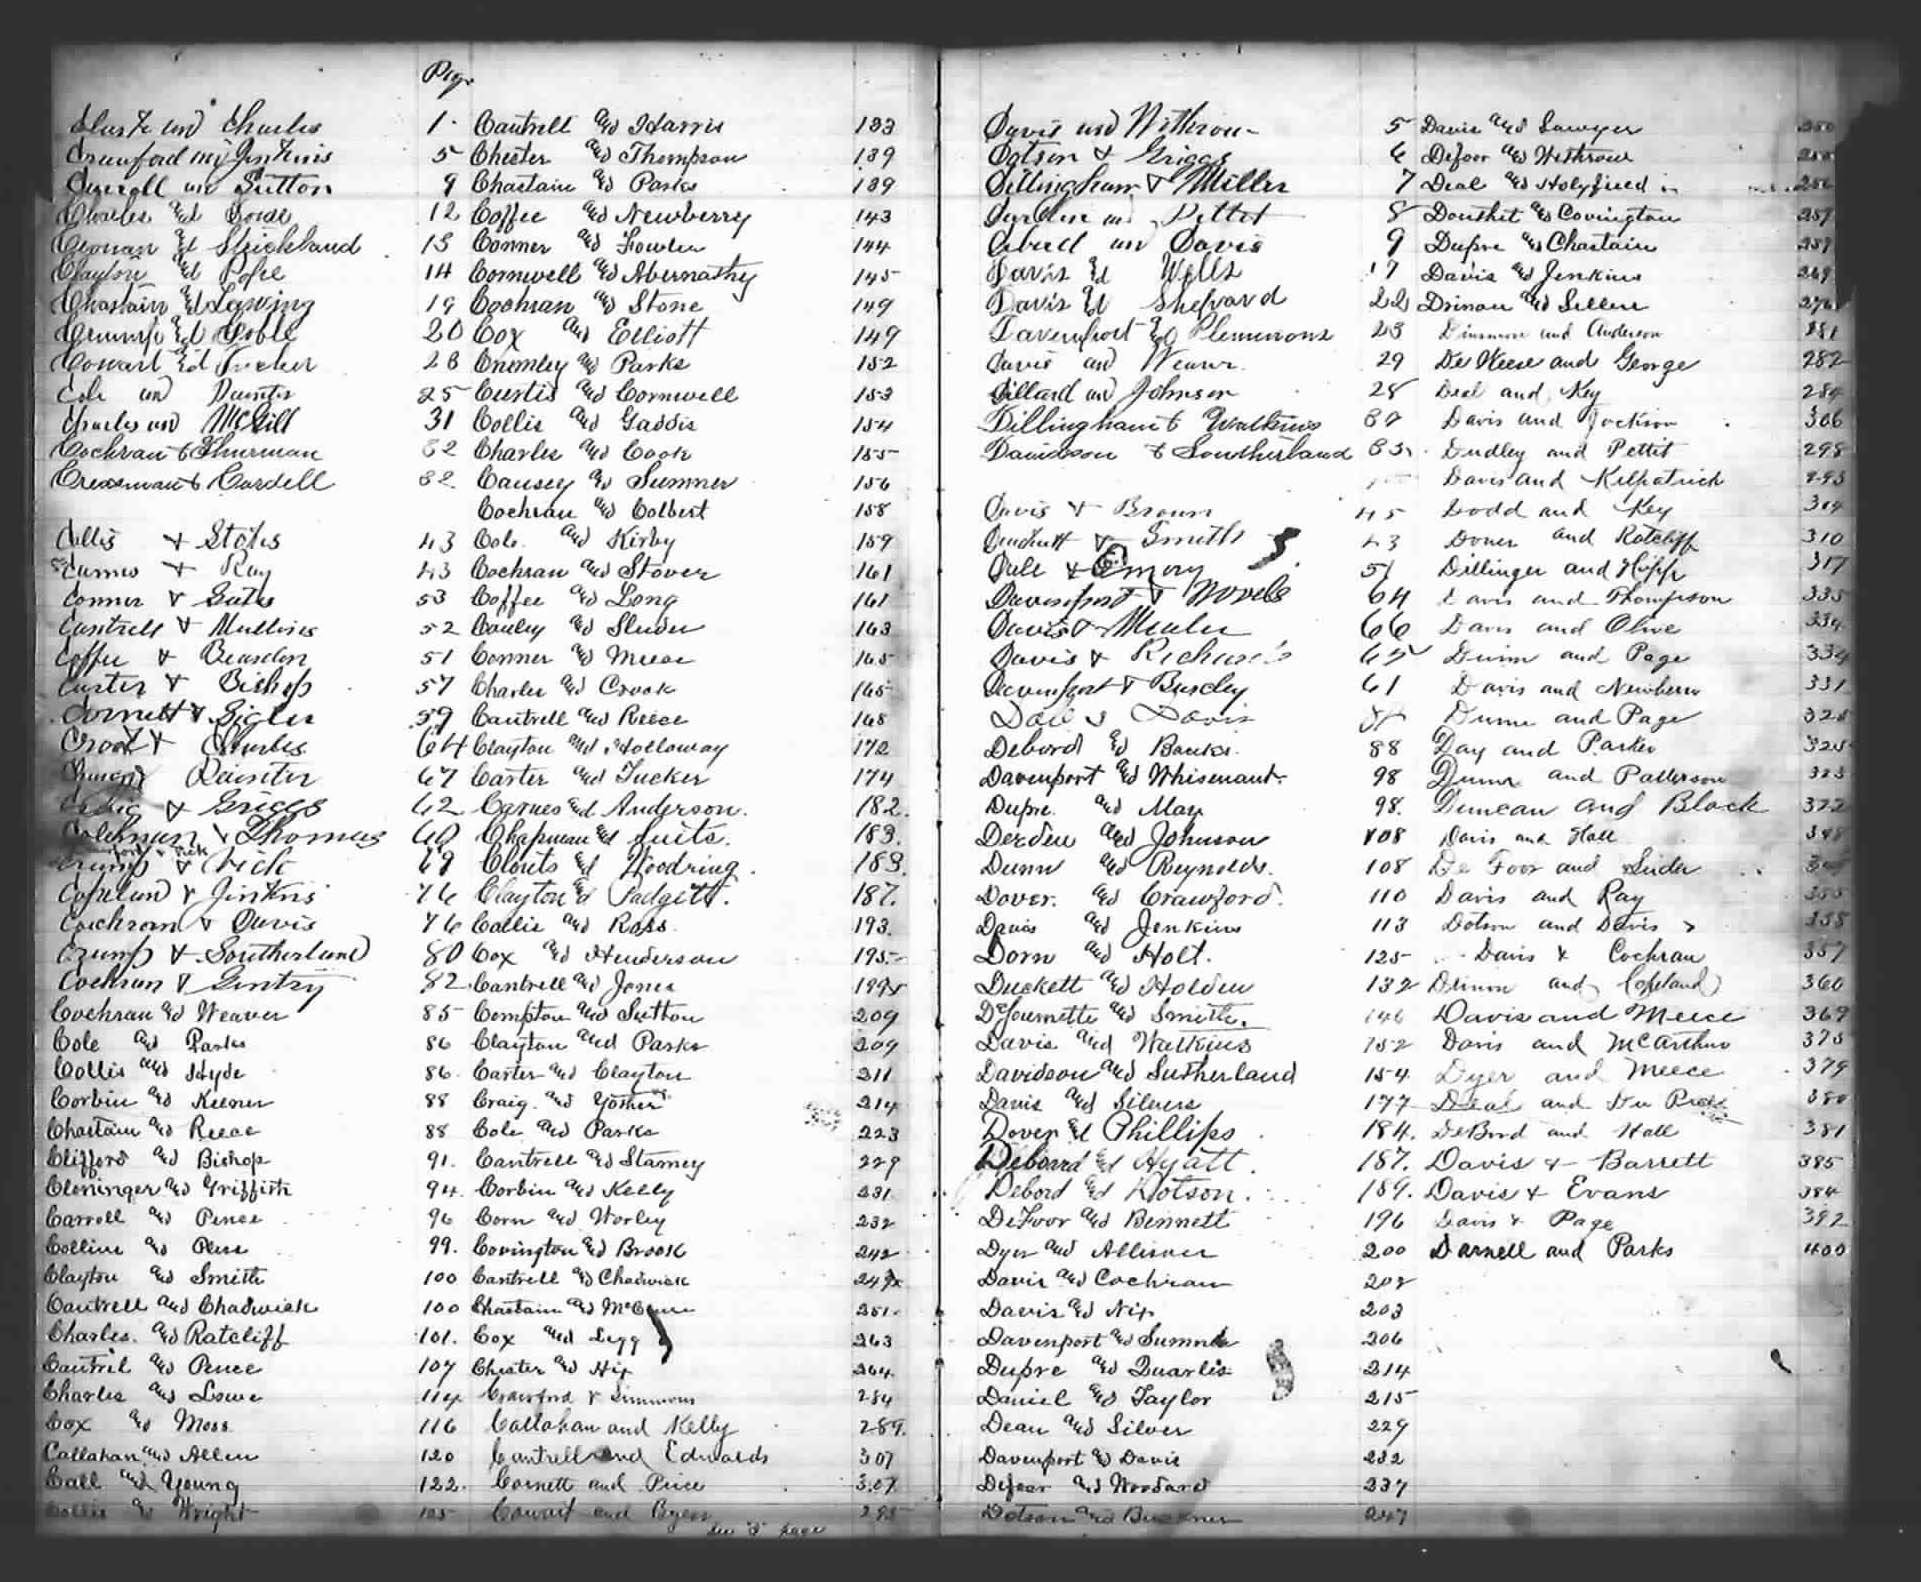 Page
Charles 1.
Crawford Jenkins 5
Carroll Sutton 9
Charles and 12
Strickland 13
Clayton and Pope 14
Chastain and Lawing 19
Crump and Goble 20
Cowart and Tucker 23
Cole and Painter 25
Charles and McGill 31
Cochran & Thurman 32
Cressman & Cardell 32
Collis & Stokes 43
& Ray 43
Conner & Gates 53
Cantrell & Mullins 52
Coffee & Bearden 51
Carter & Bishop 57
Cornett & Sigler 59
Crook & Charles 64
Painter 67
Craig & Griggs 62
Coleman & Thomas 60
Crump & Vick 69
Copeland & Jenkins 76
Cochran & Davis 76
Crump & Southerland 80
Cochran & Gentry 82
Cochran and Weaver 85
Cole and Parks 86
Collis and Hyde 86
Corbin and Keener 88
Chastain and Reece 88
Clifford and Bishop 91.
Cleninger and Griffith 94.
Carroll and Pence 96
Collins and 99.
Clayton and Smith 100
Cantrell and Chadwick 100
Charles and Ratcliff 101.
Cantril and Pence 107
Charles and Lowe 114
Cox and Moss 116
Callahan and Allen 120
Call and Young 122.
Collis and Wright 125
Cantrell and Harris 133
Chester and Thompson 139
Chastain and Parks 139
Coffee and Newberry 143
Conner and Fowler 144
Cornwell and Abernathy 145
Cochran and Stone 149
Cox and Elliott 149
Crumley and Parks 152
Curtis and Cornwell 153
Collis and Gaddis 154
Charles and Cook 155
Causey and Sumner 156
Cochran and Colbert 158
Cole and Kirby 159
Cochran and Stover 161
Coffee and Long 161
Cauley and Sluder 163
Conner and Meece 165
Charles and Crook 165
Cantrell and Reece 168
Clayton and Holloway 172
Carter and Tucker 174
Carnes and Anderson. 182.
Chapman and Suits. 183.
Clouts and Woodring. 183.
Clayton and Padgett. 187.
Collis and Ross 193.
Cox and Henderson 195
Cantrell and Jones
Compton and Sutton 209
Clayton and Parks 209
Carter and Clayton 211
Craig and Yother 214
Cole and Parks 223
Cantrell and Stamey 229
Corbin and Kelly 231
Corn and Worley 232
Covington and Brook 242
Cantrell and Chadwick
Chastain and McClure 251
Cox and Legg 263
Chester and Hix 264
Crawford & Simmons 284
Callahan and Kelly 289.
Cantrell and Edwards 307
Cornett and Price 307
Cowart and Byers 295
See "S" page
Davis and Withrow 5
Dotson & Griggs 6
Dillingham & Miller 7
Pettit 8
Davis 9
Davis and Wells 17
Davis and Shepard 22
Davenport and Plemmons 23
Davis and Weaver 29
Dillard and Johnson 28
Dillingham & Watkins 37
Davidson & Southerland
Davis & Brown 45
Smith 43
Dale & Emory 51
Davenport & Novels 64
Davis & Mealer 66
Davis & Richards
Davenport & Busley 61
Davis
Debord and Banks 88
Davenport and Whisenant. 98
Dupre and May 98.
Derden and Johnson 108
Dunn and Reynolds. 108
Dover. and Crawford. 110
Davis and Jenkins 113
Dorn and Holt. 125
Duckett and Holden 132
DeJournette and Smith. 146
Davis and Watkins 152
Davidson and Sutherland 154
Davis and Silvers 177
Dover and Phillips 184.
Deboard and Hyatt. 187.
Debord and Dotson. 189.
DeFoor and Bennett 196
Dyer and Allison 200
Davis and Cochran 202
Davis and Nix 203
Davenport and Sumner 206
Dupre and Quarles 214
Daniel and Taylor 215
Dean and Silver 229
Davenport and Davis 232
Defoor and Woodard 237
Dotson and Buckner 247
Davis and Sawyer 250
Defoor and Withrow
Deal and Holyfield
Douthit and Covington 257
Dupre and Chastain 259
Davis and Jenkins 269
Drinon and Sellers 276
Dinsmore and Anderson 281
DeWeese and George 282
Deal and Key 284
Davis and Jackson 306
Dudley and Pettit 298
Davis and Kilpatrick 293
Dodd and Key 314
Dover and Ratcliff 310
Dillinger and Hipp 317
Davis and Thompson 335
Davis and Olive 334
Dunn and Page 334
Davis and Newberry 331
Dunn and Page 325
Day and Parker 325
Dunn and Patterson 323
Duncan and Black 322
Davis and Hall 348
DeFoor and
Davis and Ray 355
Dotson and Davis 358
Davis & Cochran 357
Drinon and Copeland 360
Davis and Meece 369
Davis and McArthur 375
Dyer and Meece 379
Deal and Du Pree 380
DeBord and Hall 381
Davis & Barrett 385
Davis & Evans 384
Davis & Page 392
Darnell and Parks 400